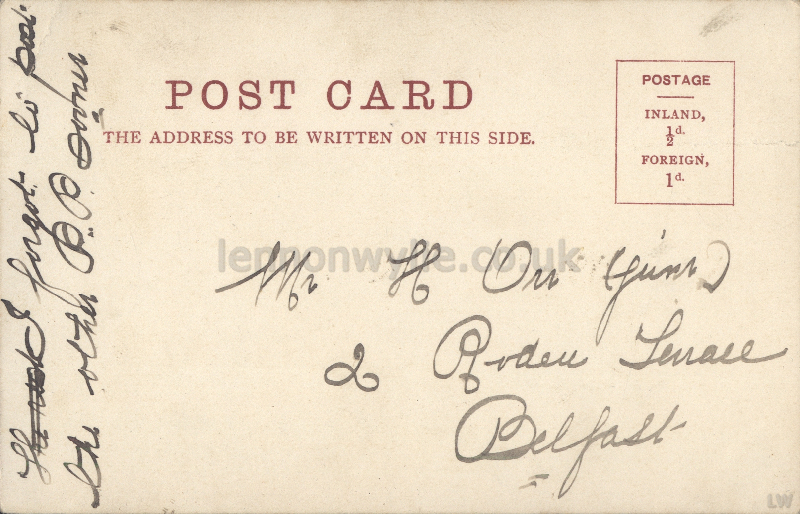 POST CARD
THE ADDRESS TO BE WRITTEN ON THIS SIDE.
POSTAGE
INLAND,
½d.
FOREIGN,
1d.
lennonwylie.co.uk
Mr H Orr (Junr)
2 Roden Terrace
Belfast
I forgot to post
the other P.P.
LW